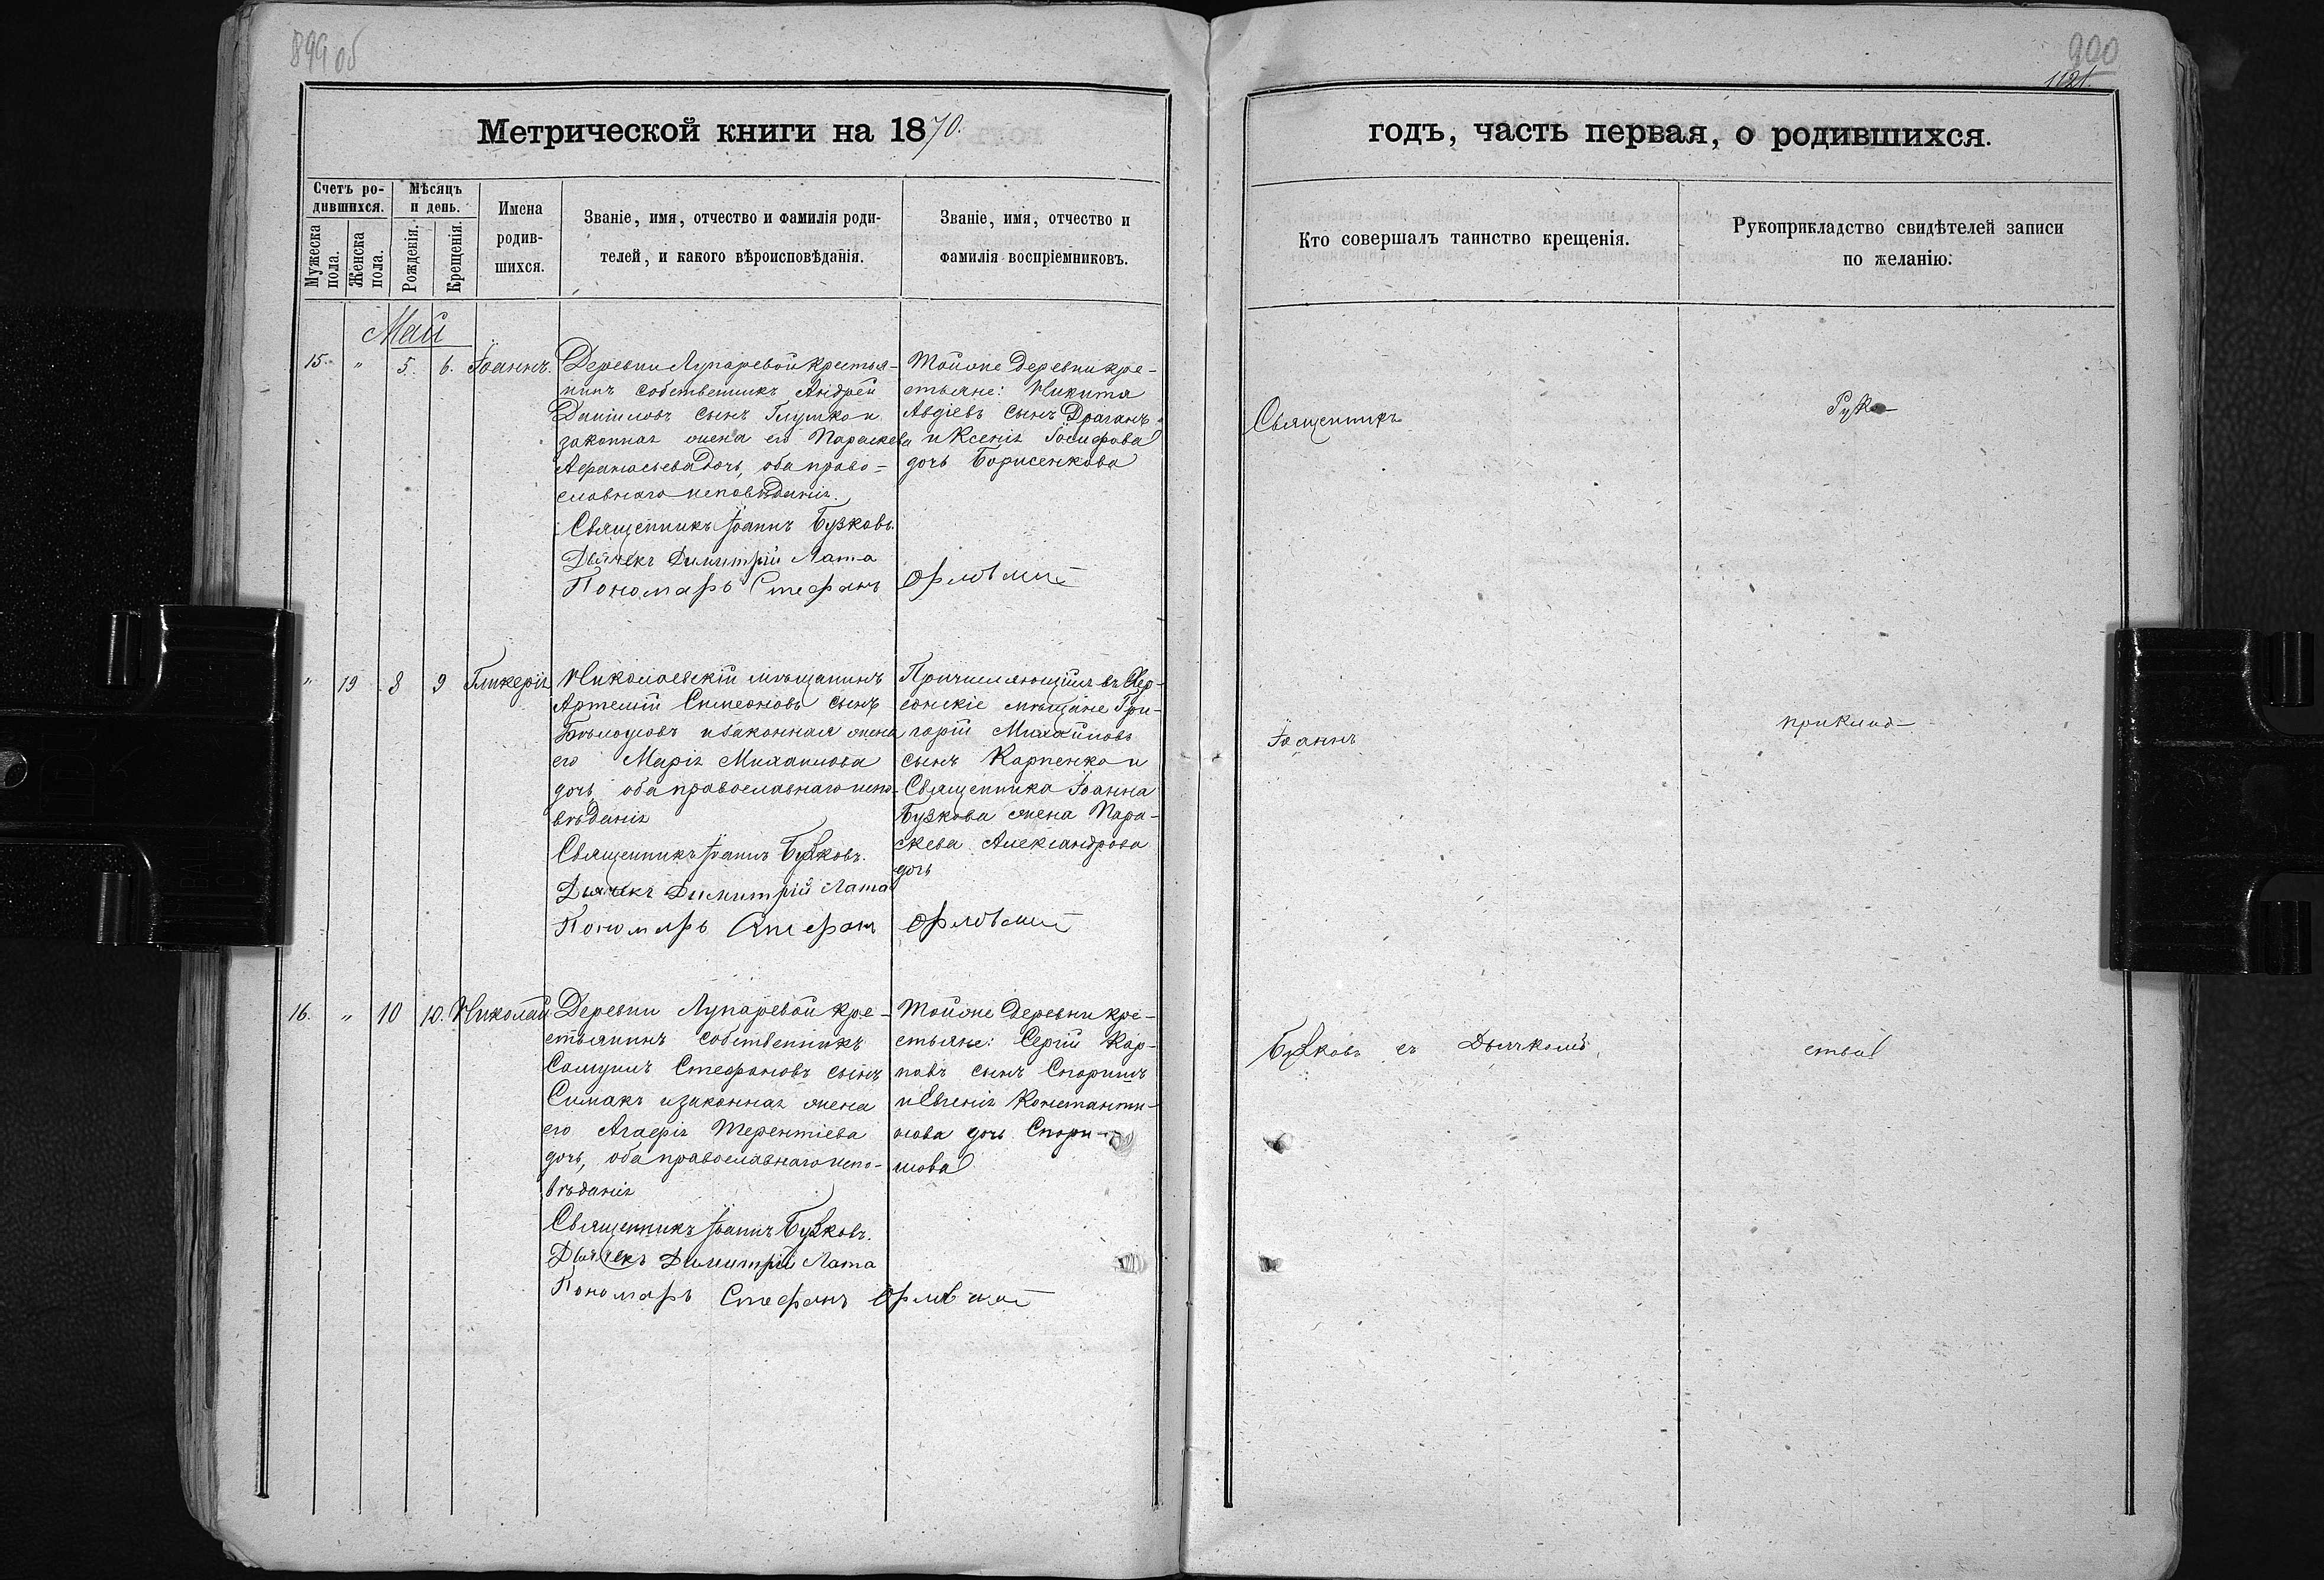 899 об
900
1121.
Метрической книги на 1870.
годъ, часть первая, о родившихся.
Счетъ ро-
дившихся.
Мѣсяцъ
и день.
Мужеска
пола.
Женска
пола.
Рожденія.
Крещенія.
Имена
родив-
шихся.
Званіе, имя, отчество и фамилія роди-
телей, и какого вѣроисповѣданія.
Званіе, имя, отчество и
фамилія воспріемниковъ.
Кто совершалъ таинство крещенія.
Рукоприкладство свидѣтелей записи
по желанію:
Май
15. " 5. 6. Іоаннъ.
Деревни Лупаревой крестья-
нинъ собственникъ Андрей
Даніиловъ сынъ Глушко и
законная жена его Параскева
Афанасьева дочь, оба право-
славнаго исповѣданія.
Священникъ Іоаннъ Бузковъ.
Дьячекъ Димитрій Лата
Пономарь Стефанъ Орловскій
Тойже деревни кре-
стьяне: Никита
Авдіевъ сынъ Драганъ
и Ксенія Іосифова
дочь Борисенкова
" 19 8 9 Гликерія
Николаевскій мѣщанинъ
Артемій Симеоновъ сынъ
Бѣлоусовъ и законная жена
его Марія Михаилова
дочь оба православнаго испо-
вѣданія
Священникъ Іоаннъ Бузковъ.
Дьячекъ Димитрій Лата
Пономарь Стефанъ Орловскій
Причисляющійся въ Хер-
сонскіе мѣщане Гри-
горій Михайловъ
сынъ Карпенко и
Священника Іоанна
Бузкова жена Пара-
скева Александрова
дочь
16. " 10 10. Николай
Деревни Лупаревой кре-
стьянинъ собственникъ
Самуилъ Стефановъ сынъ
Симакъ и законная жена
его Агафія Терентіева
дочь, оба православнаго испо-
вѣданія
Священникъ Іоаннъ Бузковъ.
Дьячекъ Димитрій Лата
Пономарь Стефанъ Орловскій
Тойже деревни кре-
стьяне: Сергій Кар-
повъ сынъ
и Евгенія Константи-
нова дочь
Священникъ
Іоаннъ
Бузковъ съ Дьячкомъ
Руко-
приклад-
ства